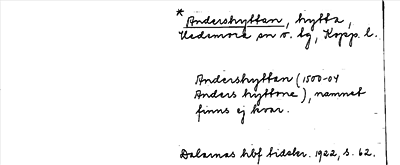 * Andershyttan, hytta,
Hedemora sn o. bg, Kopp. l.
Andershyttan (1500-04
Anders hyttone), namnet
finns ej kvar.
Dalarnas hbf tidskr. 1922, s. 62.